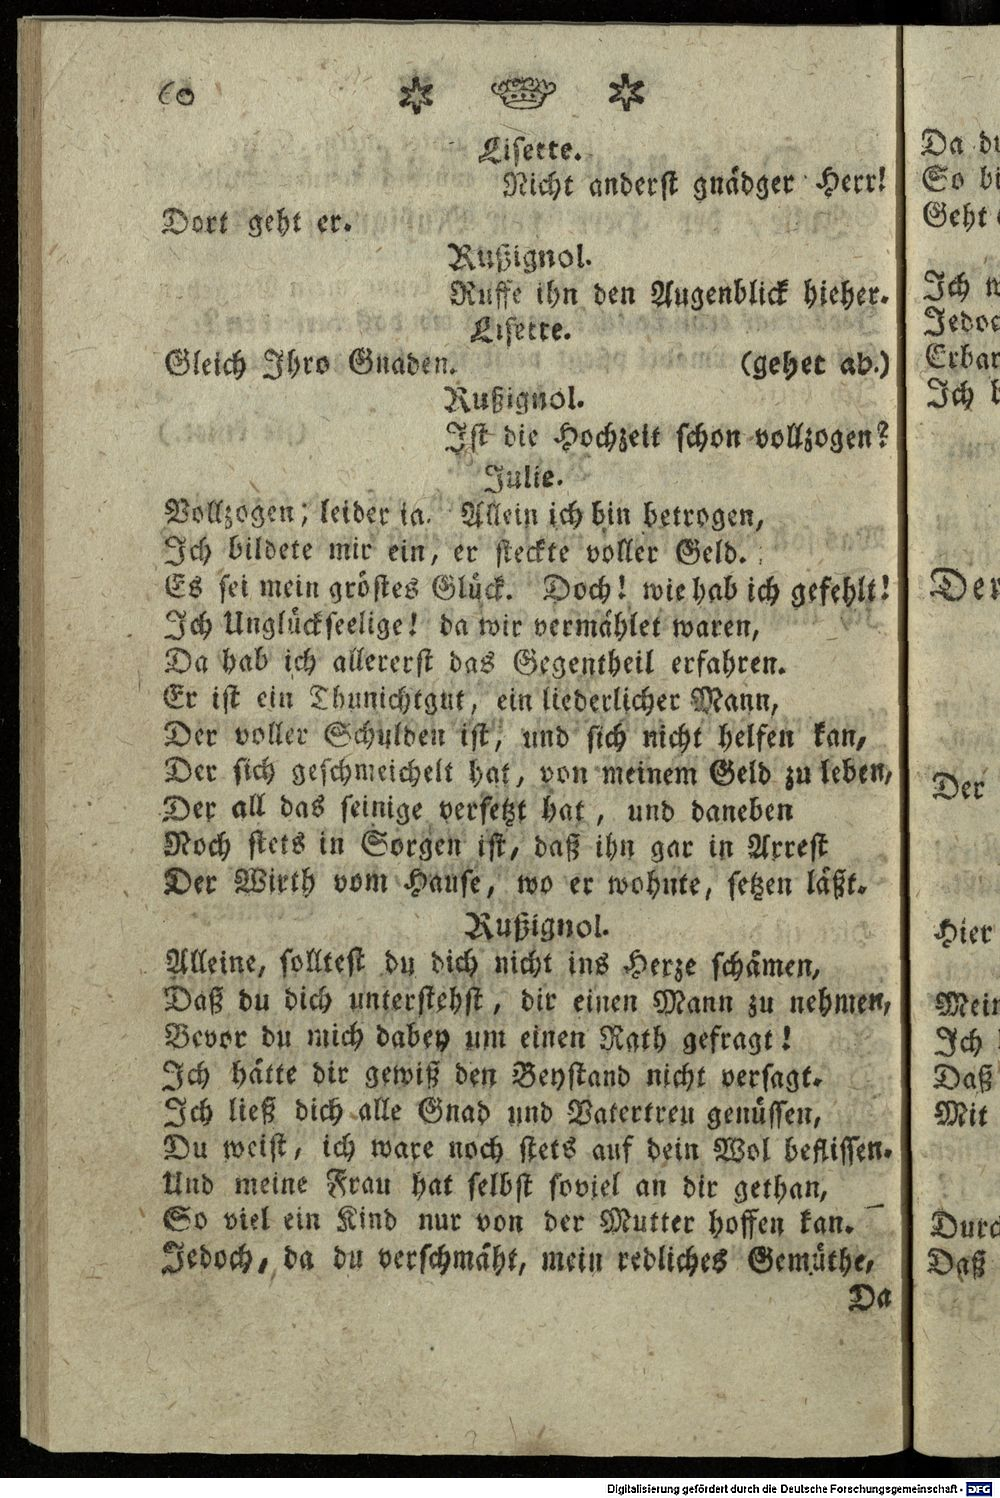 60
Lisette.
Nicht anderst gnädger Herr!
Dort geht er.
Rußignol.
Ruffe ihn den Augenblick hieher.
Lisette.
Gleich Ihro Gnaden. (gehet ab.)
Rußignol.
Ist die Hochzeit schon vollzogen?
Julie.
Vollzogen, leider ia. Allein ich bin betrogen,
Ich bildete mir ein, er steckte voller Geld.
Es sei mein gröstes Glück. Doch! wie hab ich gefehlt!
Ich Unglückseelige! da wir vermählet waren,
Da hab ich allererst das Gegentheil erfahren.
Er ist ein Thunichtgut, ein liederlicher Mann,
Der voller Schulden ist, und sich nicht helfen kan,
Der sich geschmeichelt hat, von meinem Geld zu leben,
Der all das seinige versetzt hat, und daneben
Noch stets in Sorgen ist, daß ihn gar in Arrest
Der Wirth vom Hause, wo er wohnte, setzen läßt.
Rußignol.
Alleine, solltest du dich nicht ins Herze schämen,
Daß du dich unterstehst, dir einen Mann zu nehmen,
Bevor du mich dabey um einen Rath gefragt!
Ich hätte dir gewiß den Beystand nicht versagt.
Ich ließ dich alle Gnad und Vatertreu genüssen,
Du weist, ich ware noch stets auf dein Wol beflissen.
Und meine Frau hat selbst soviel an dir gethan,
So viel ein Kind nur von der Mutter hoffen kan.
Jedoch, da du verschmäht, mein redliches Gemüthe,
Da
Da
So
Geht
Ich
Erbar
Ich
Der
Der
Hier
Mein
Ich
Daß
Mit
Durch
Daß
Digitalisierung gefördert durch die Deutsche Forschungsgemeinschaft - DFG